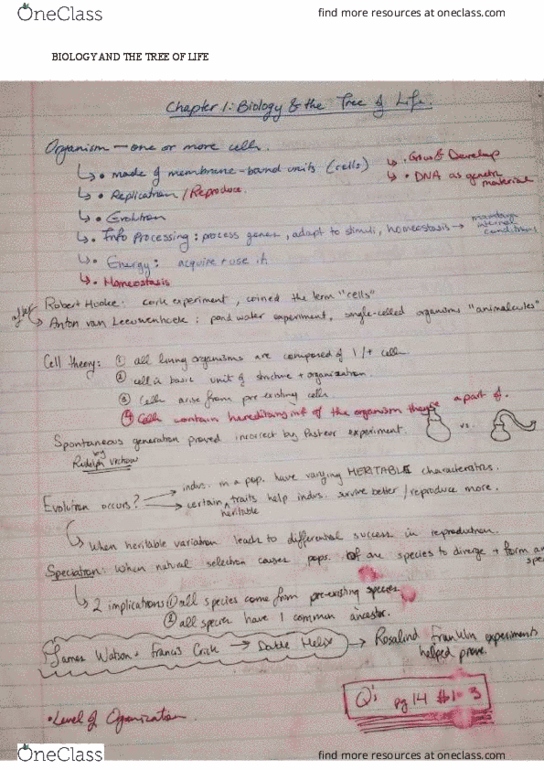 OneClass
find more resources at oneclass.com
BIOLOGY AND THE TREE OF LIFE
Chapter 1: Biology & the Tree of Life.
Organism — one or more cells.
• made of membrane-bound units (cells)
• Grow & Develop
• Replication / Reproduce.
• DNA as genetic material
• Evolution
• Info Processing: process genes, adapt to stimuli, homeostasis → maintain internal conditions
• Energy: acquire + use it
• Homeostasis
Robert Hooke: cork experiment, coined the term "cells"
after Anton van Leeuwenhoek: pond water experiment, single-celled organisms "animalcules"
Cell theory: ① all living organisms are composed of 1/+ cells
② cell a basic unit of structure + organization.
③ cells arise from pre existing cells.
④ Cells contain hereditary inf of the organism they're a part of.
Spontaneous generation proved incorrect by Pasteur experiment.
vs.
by Rudolph Virchow
indivs. in a pop. have varying HERITABLE characteristics.
Evolution occurs?
certain heritable traits help indivs. survive better / reproduce more.
When heritable variation leads to differential success in reproduction.
Speciation: When natural selection causes pops. of are species to diverge + form
2 implications ① all species come from pre-existing species
② all species have 1 common ancestor.
James Watson + Francis Crick → Double Helix → Rosalind Franklin experiments
helped prove.
Q's pg 14 #1-3
• Level of Organization.
OneClass
find more resources at oneclass.com